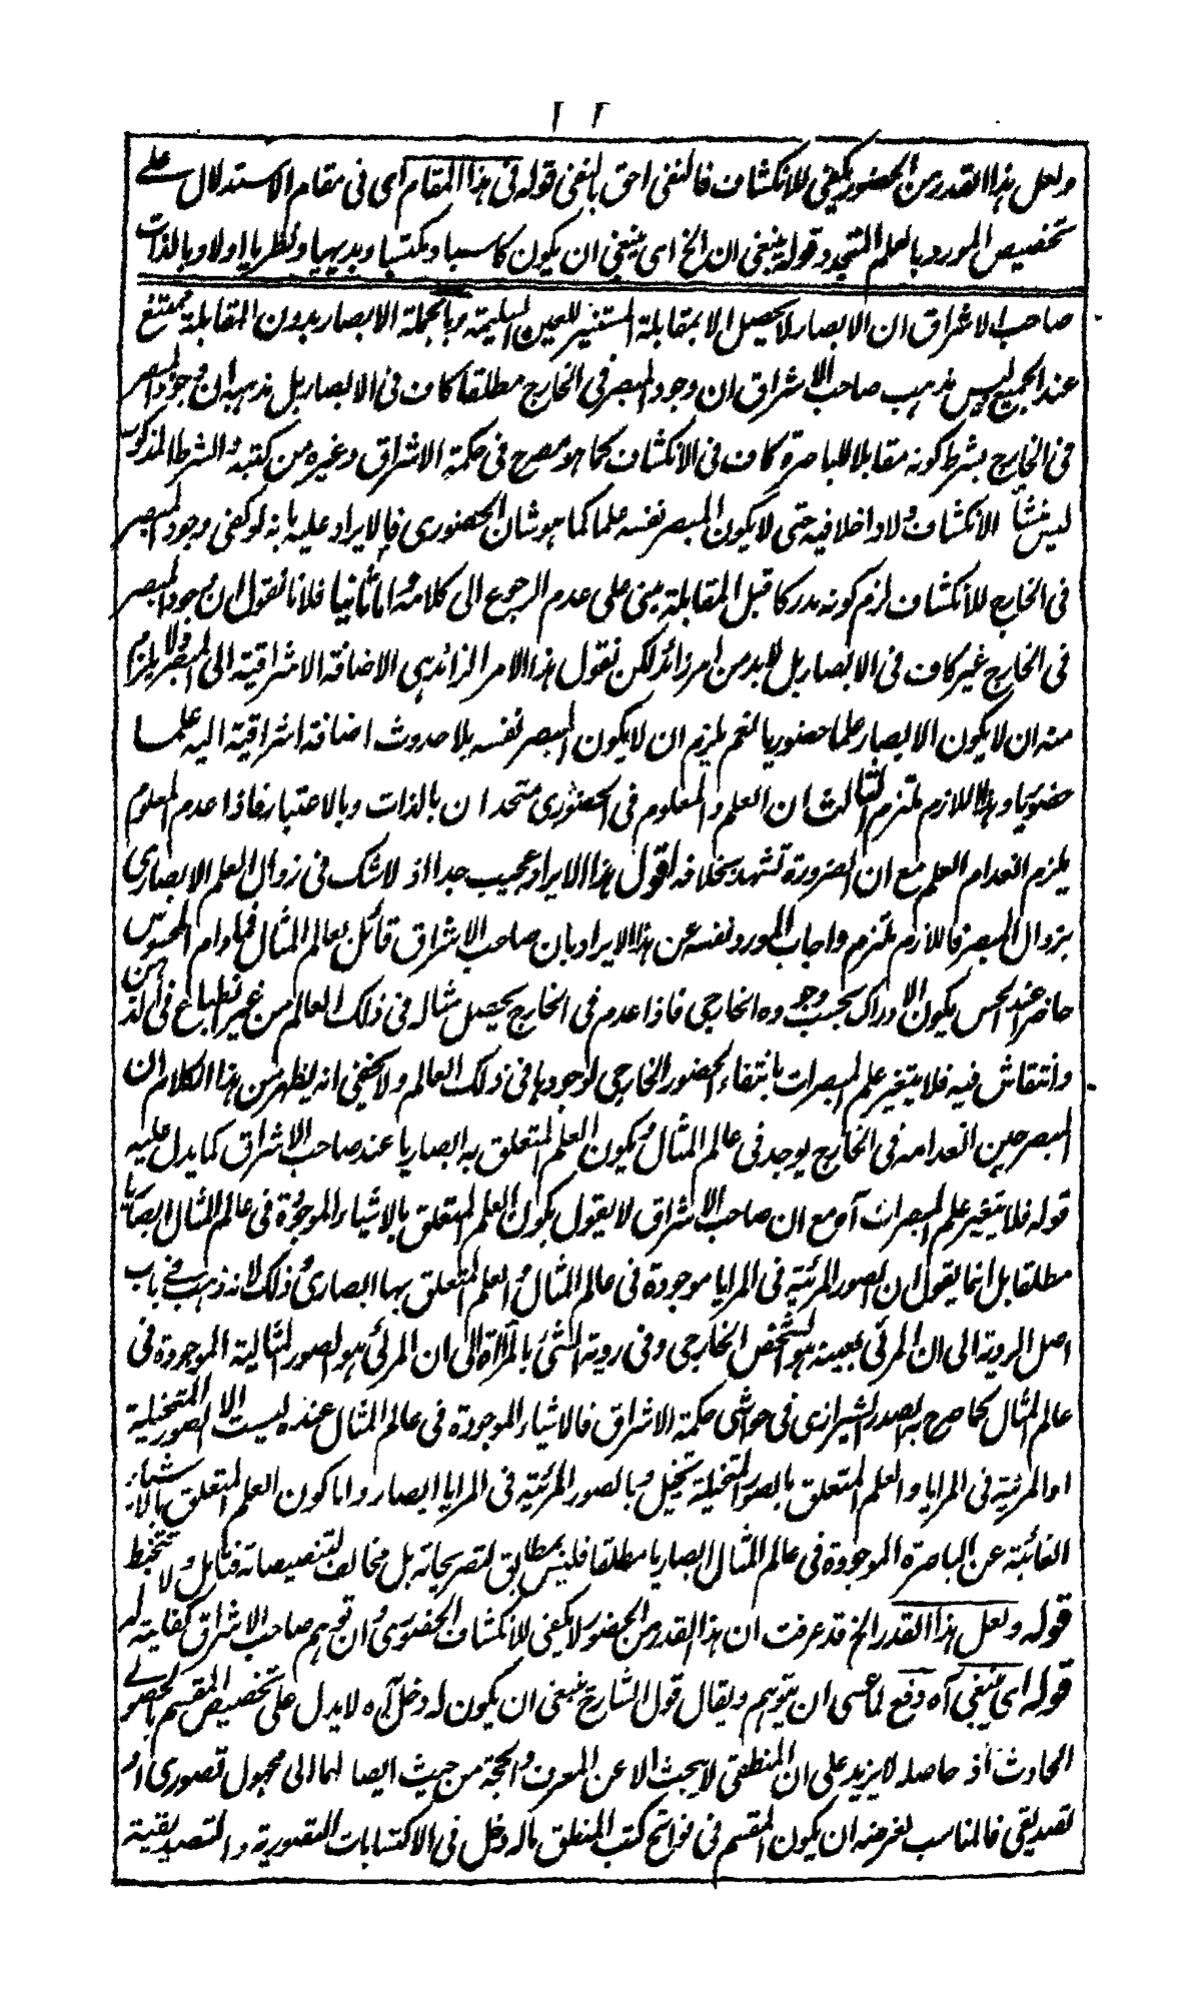 ٢٢
ولعل هذا القدر من الحضور يكفي للانكشاف فالنفي احق بالنفي قوله في هذا المقام اى فى مقام الاستدلال على
تخصيص المورد بالعلم المتجدد قوله ينبغى ان الخ اى ينبغى ان يكون كاسبا ومكتسبا وبديهيا ونظريا اولا وبالذات
صاحب الاشراق ان الابصار لا يحصل الا بمقابلة المستنير للعين السليمة وبالجملة الابصار بدون المقابلة ممتنع
عند الجميع ليس مذهب صاحب الاشراق ان وجود المبصر فى الخارج مطلقا كاف فى الابصار بل مذهبه ان وجود المبصر
فى الخارج بشرط كونه مقابلا للباصرة كاف فى الانكشاف كما هو مصرح فى حكمة الاشراق وغيره من كتبه والشرط المذكور
ليس منشأ الانكشاف ولا داخلا فيه حتى لا يكون المبصر نفسه علما كما هو شان الحضورى فالايراد عليه بانه لو كفى وجود المبصر
فى الخارج للانكشاف لزم كونه مدركا قبل المقابلة مبنى على عدم الرجوع الى كلامه واما ثانيا فلانا نقول ان وجود المبصر
فى الخارج غير كاف فى الابصار بل لابد من امر زائد لكن نقول هذا الامر الزائد هى الاضافة الاشراقية الى المبصر ولا يلزم
منه ان لا يكون الابصار علما حضوريا نعم يلزم ان لا يكون المبصر نفسه بلا حدوث اضافة اشراقية اليه علما
حضوريا وهذا اللازم ملتزم الثالث ان العلم والمعلوم فى الحضورى متحدان بالذات وبالاعتبار فاذا عدم المعلوم
يلزم انعدام العلم مع ان الضرورة تشهد بخلافه اقول هذا الايراد عجيب جدا اذ لا شك فى زوال العلم الابصارى
بزوال المبصر فاللازم ملتزم واجاب المورد نفسه عن هذا الايراد بان صاحب الاشراق قائل بعالم المثال فما دام المحسوس
حاضرا عند الحس يكون الادراك بحسب وجوده الخارجى فاذا عدم فى الخارج يحصل مثاله فى ذلك العالم من غير انطباع فى الذهن
وانتقاش فيه فلا يتغير علم المبصرات بانتفاء الحضور الخارجى لوجودها فى ذلك العالم ولا يخفى انه يظهر من هذا الكلام ان
المبصر حين انعدامه فى الخارج يوجد فى عالم المثال ويكون العلم المتعلق به ابصاريا عند صاحب الاشراق كما يدل عليه
قوله فلا يتغير علم المبصرات آه مع ان صاحب الاشراق لا يقول بكون العلم المتعلق بالاشياء الموجودة فى عالم المثال ابصاريا
مطلقا بل انما يقول ان الصور المرئية فى المرايا موجودة فى عالم المثال والعلم المتعلق بها ابصارى وذلك لانه ذهب فى باب
اصل الروية الى ان المرئى بعينه هو الشخص الخارجى وفى روية الشئ بالمرآة الى ان المرئى هو الصور المثالية الموجودة فى
عالم المثال كما صرح به الصدر الشيرازى فى حواشى حكمة الاشراق فالاشياء الموجودة فى عالم المثال عنده ليست الا الصور المتخيلة
او المرئية فى المرايا والعلم المتعلق بالصور المتخيلة تخيل وبالصور المرئية فى المرايا ابصار واما كون العلم المتعلق بالاشياء
الغائبة عن الباصرة الموجودة فى عالم المثال ابصاريا مطلقا فليس بمطابق لتصريحاته بل مخالف لتنصيصاته فتامل ولا تتخبط
قوله ولعل هذا القدر الخ قد عرفت ان هذا القدر من الحضور لا يكفى للانكشاف الحضورى وان توهم صاحب الاشراق كفايته له
قوله اى ينبغى آه دفع لما عسى ان يتوهم ويقال قول الشارح ينبغى ان يكون له دخل آه لا يدل على تخصيص المقسم بالحصولى
الحادث اذ حاصله لا يزيد على ان المنطقى لا يبحث الا عن المعرف والحجة من حيث ايصالهما الى مجهول تصورى او
تصديقى فالمناسب لغرضه ان يكون المقسم فى فواتح كتب المنطق ماله دخل فى الاكتسابات التصورية والتصديقية